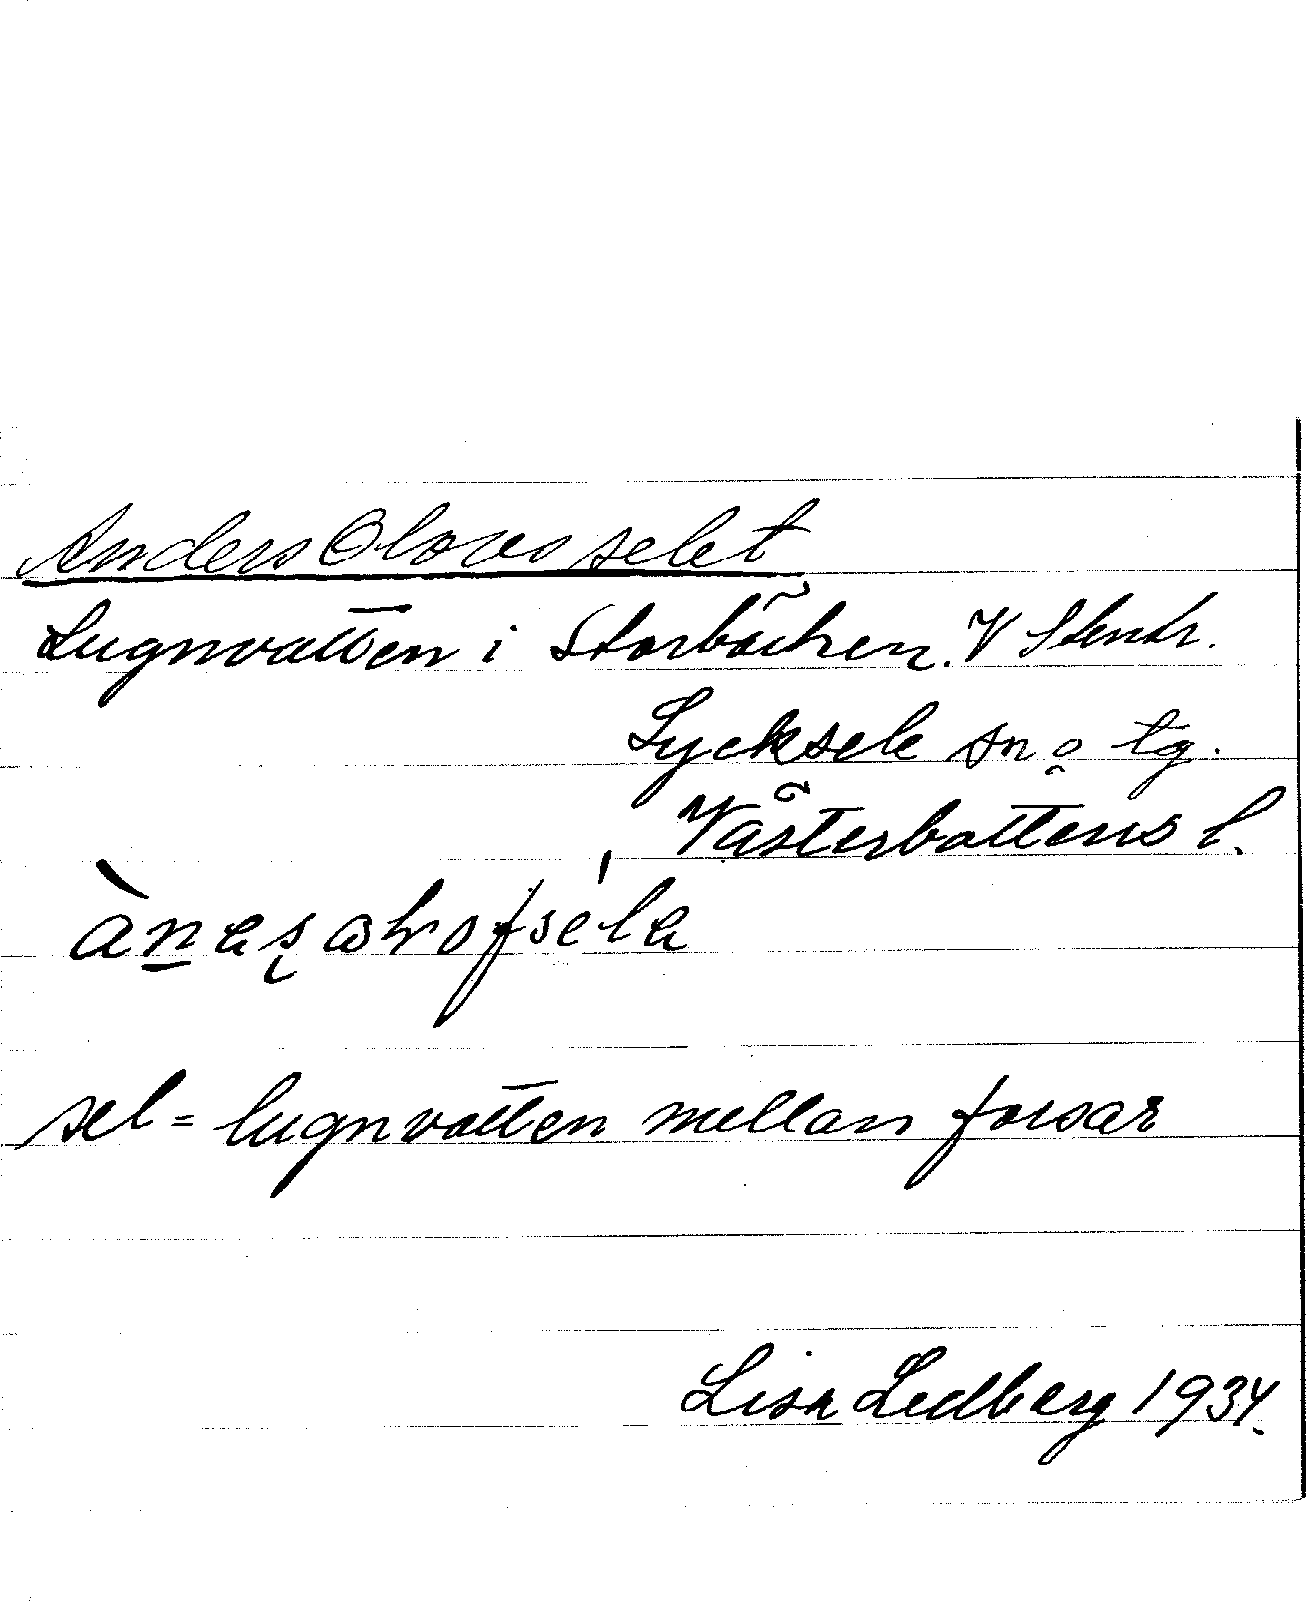 Anders Olovsselet
Lugnvatten i Storbäcken. V Stentr.
Lycksele sn o tg.
Västerbottens l.
sel = lugnvatten mellan forsar
Lisa Ledberg 1934.